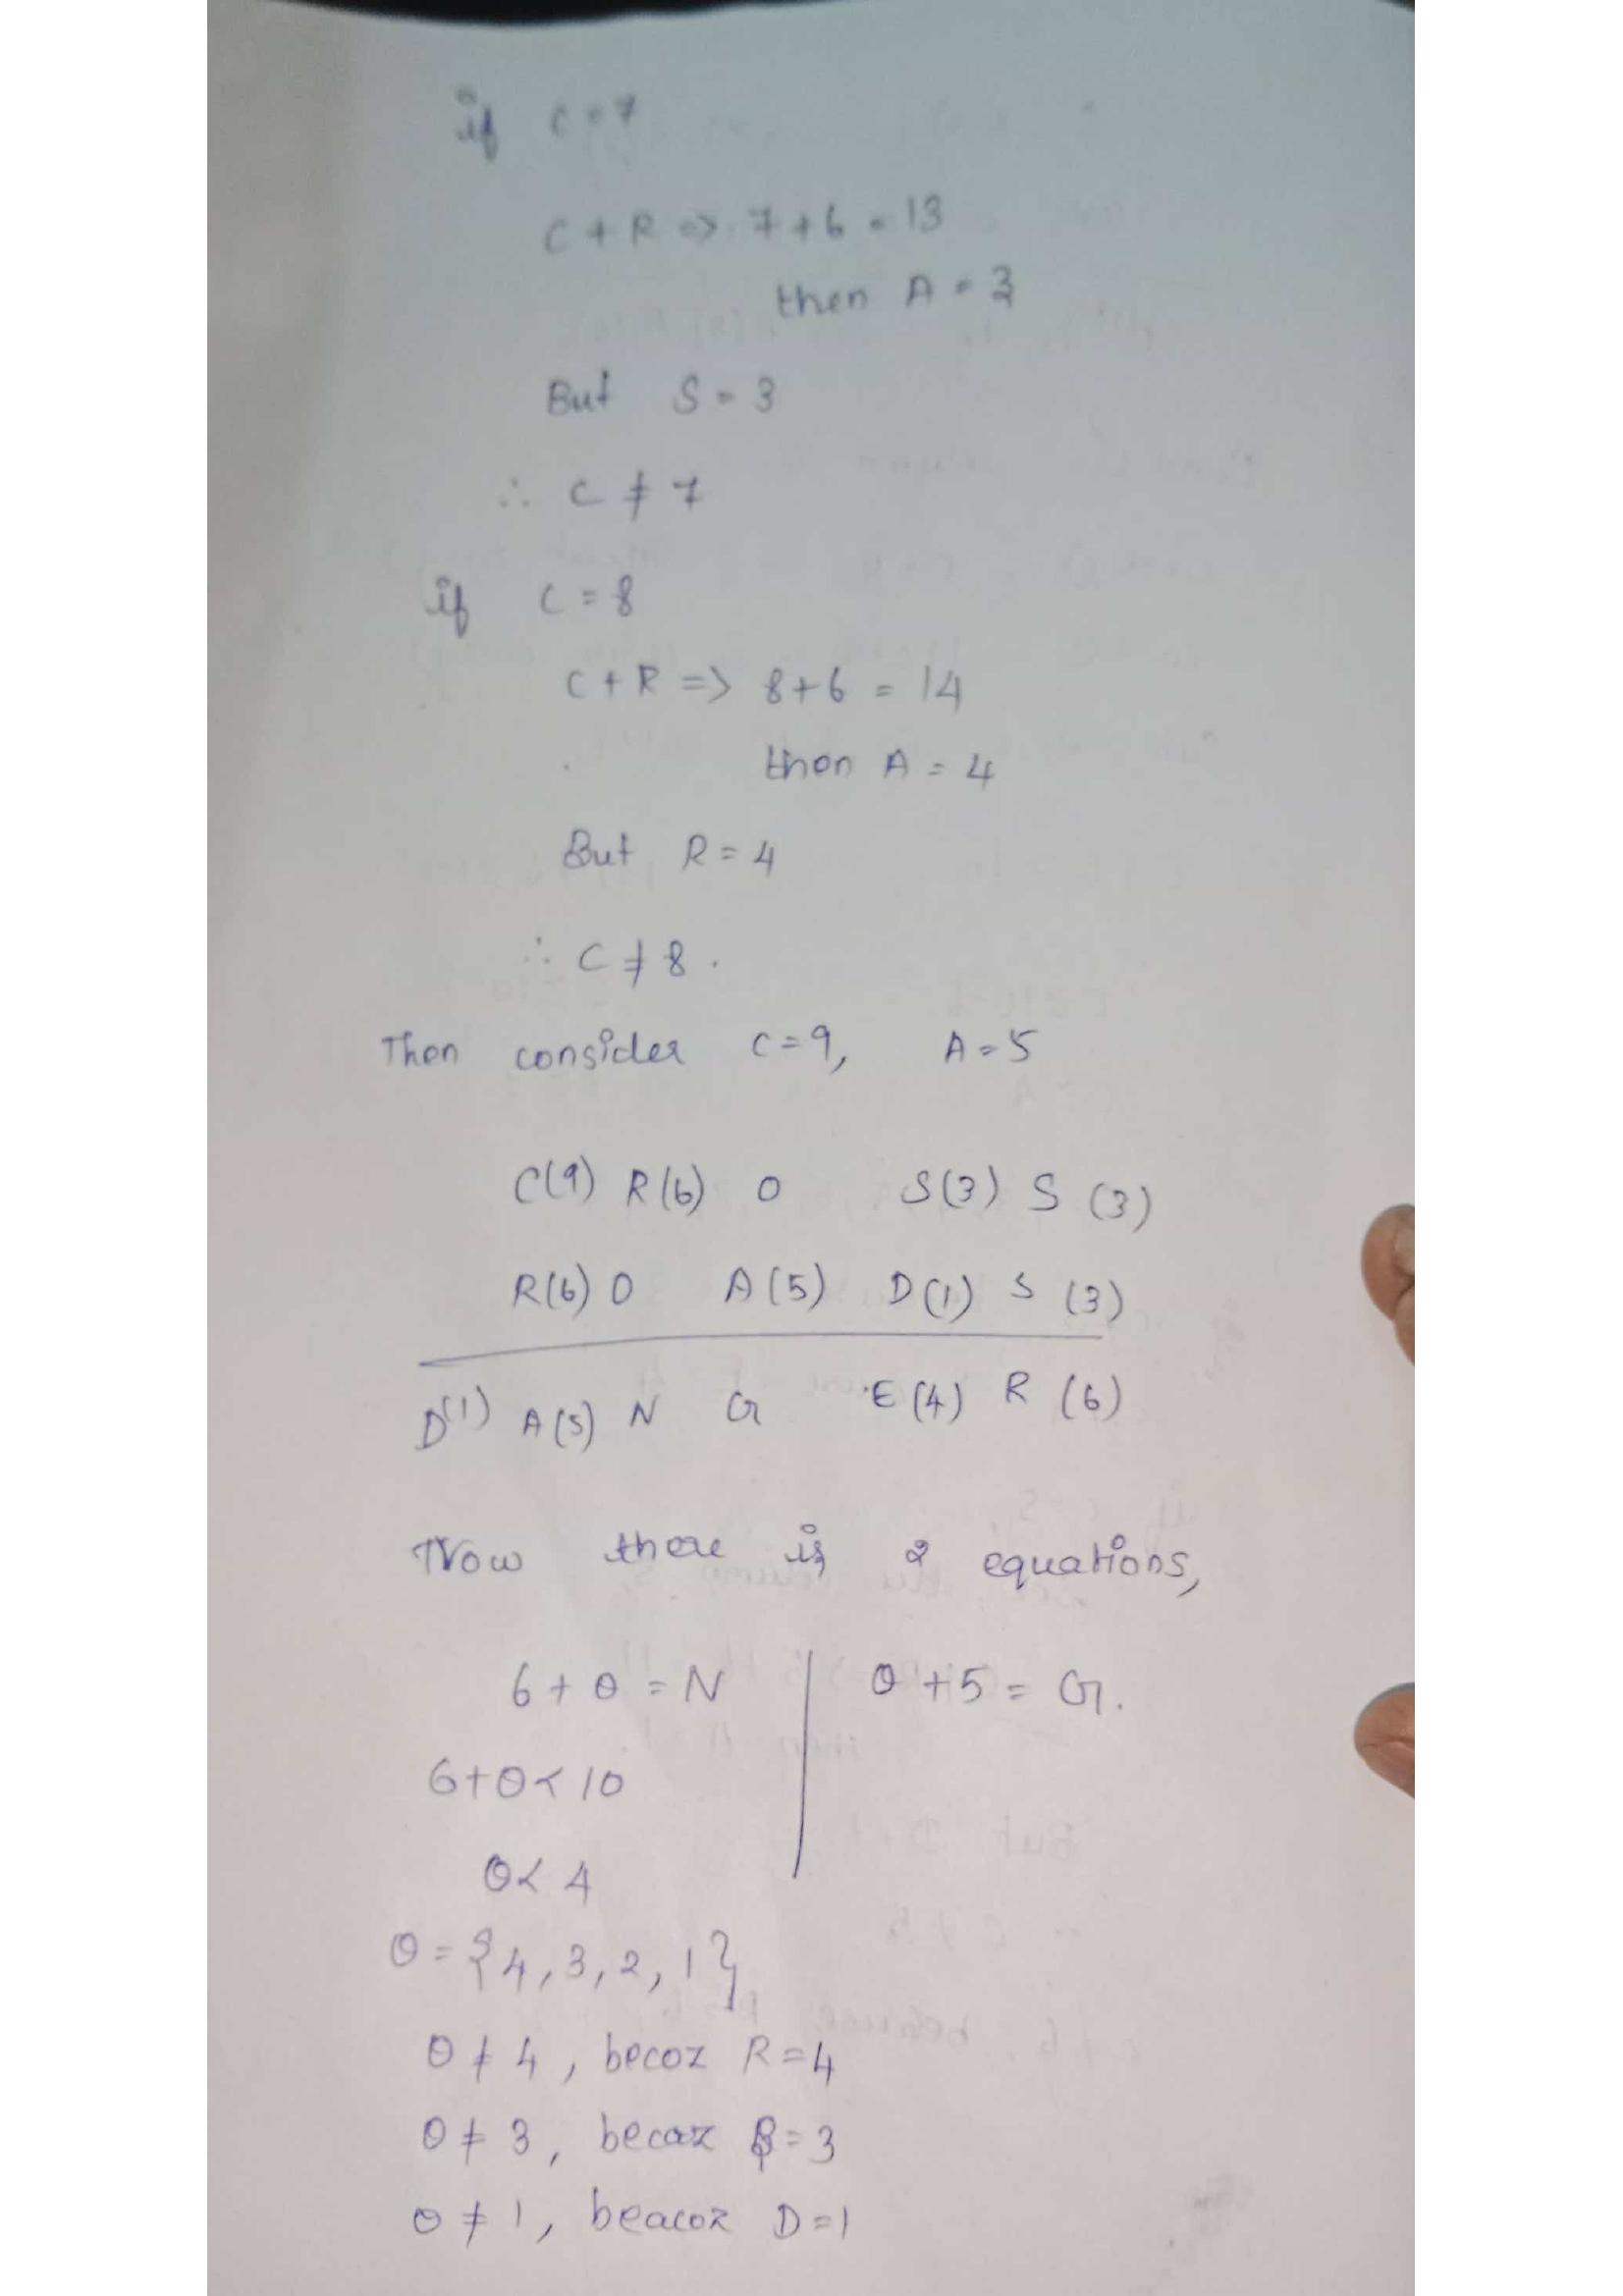 if C=7
C+R => 7+6 = 13
then A = 3
But S = 3
∴ C ≠ 7
if C = 8
C+R => 8+6 = 14
then A = 4
But R = 4
∴ C ≠ 8.
Then consider C=9, A=5
C(9) R(6) O S(3) S (3)
R(6) O A(5) D(1) S (3)
D(1) A(5) N G E(4) R (6)
Now there is 2 equations,
6+O = N O+5 = G.
6+O< 10
O< 4
O = {4,3,2,1}
O ≠ 4, becoz R=4
O ≠ 3, becaz S=3
O ≠ 1, beacoz D=1